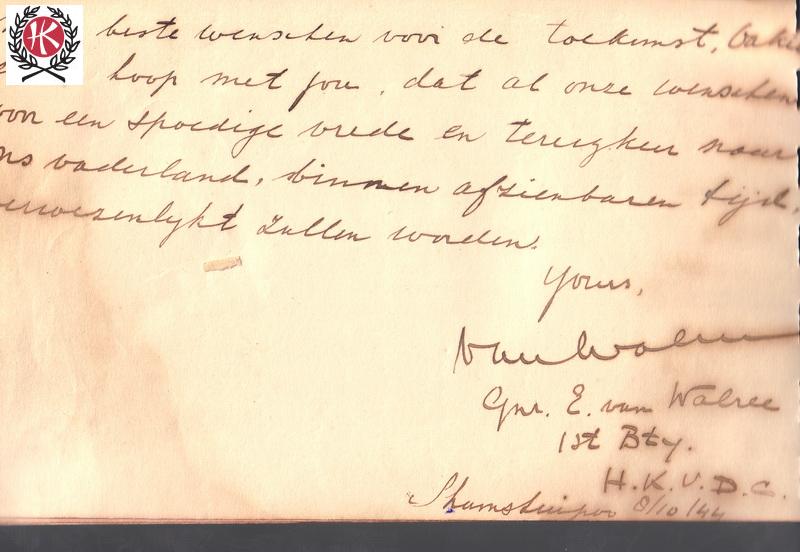 HK
beste wenschen voor de toekomst,
hoop met jou, dat al onze wenschen
voor een spoedige vrede en terugkeer naar
ons vaderland, binnen afzienbaren tijd,
verwezenlykt zullen worden.
Yours,
van Walree
Gnr. E. van Walree
1st Bty.
H.K.V.D.C.
Shamshuipoo 8/10/44